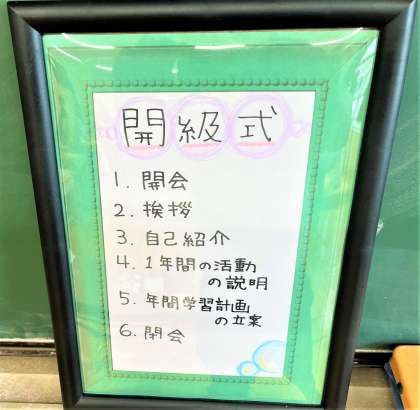 開級式
1. 開会
2. 挨拶
3. 自己紹介
4. 1年間の活動
の説明
5. 年間学習計画
の立案
6. 閉会